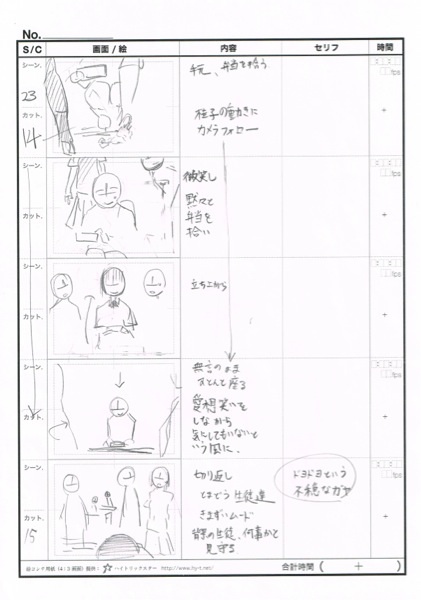 No.
S/C 画面 / 絵 内容 セリフ 時間
シーン.
23
カット.
14
手元、弁当を拾う
桂子の動きに
カメラフォロー
fps
+
シーン.
カット.
微笑し
黙々と
弁当を
拾い
fps
+
シーン.
カット.
立ち上がる
fps
+
シーン.
カット.
無言のまま
すとんと座る
愛想笑いを
しながら
気にしてもいないと
いう風に、
fps
+
シーン.
カット.
15
切り返し
とまどう生徒達
きまずいムード
背景の生徒、何事かと
見守る
ドヨドヨという
不穏なガヤ
fps
+
絵コンテ用紙
ハイトリックスター http://www.hyrt.net/
合計時間 ( + )